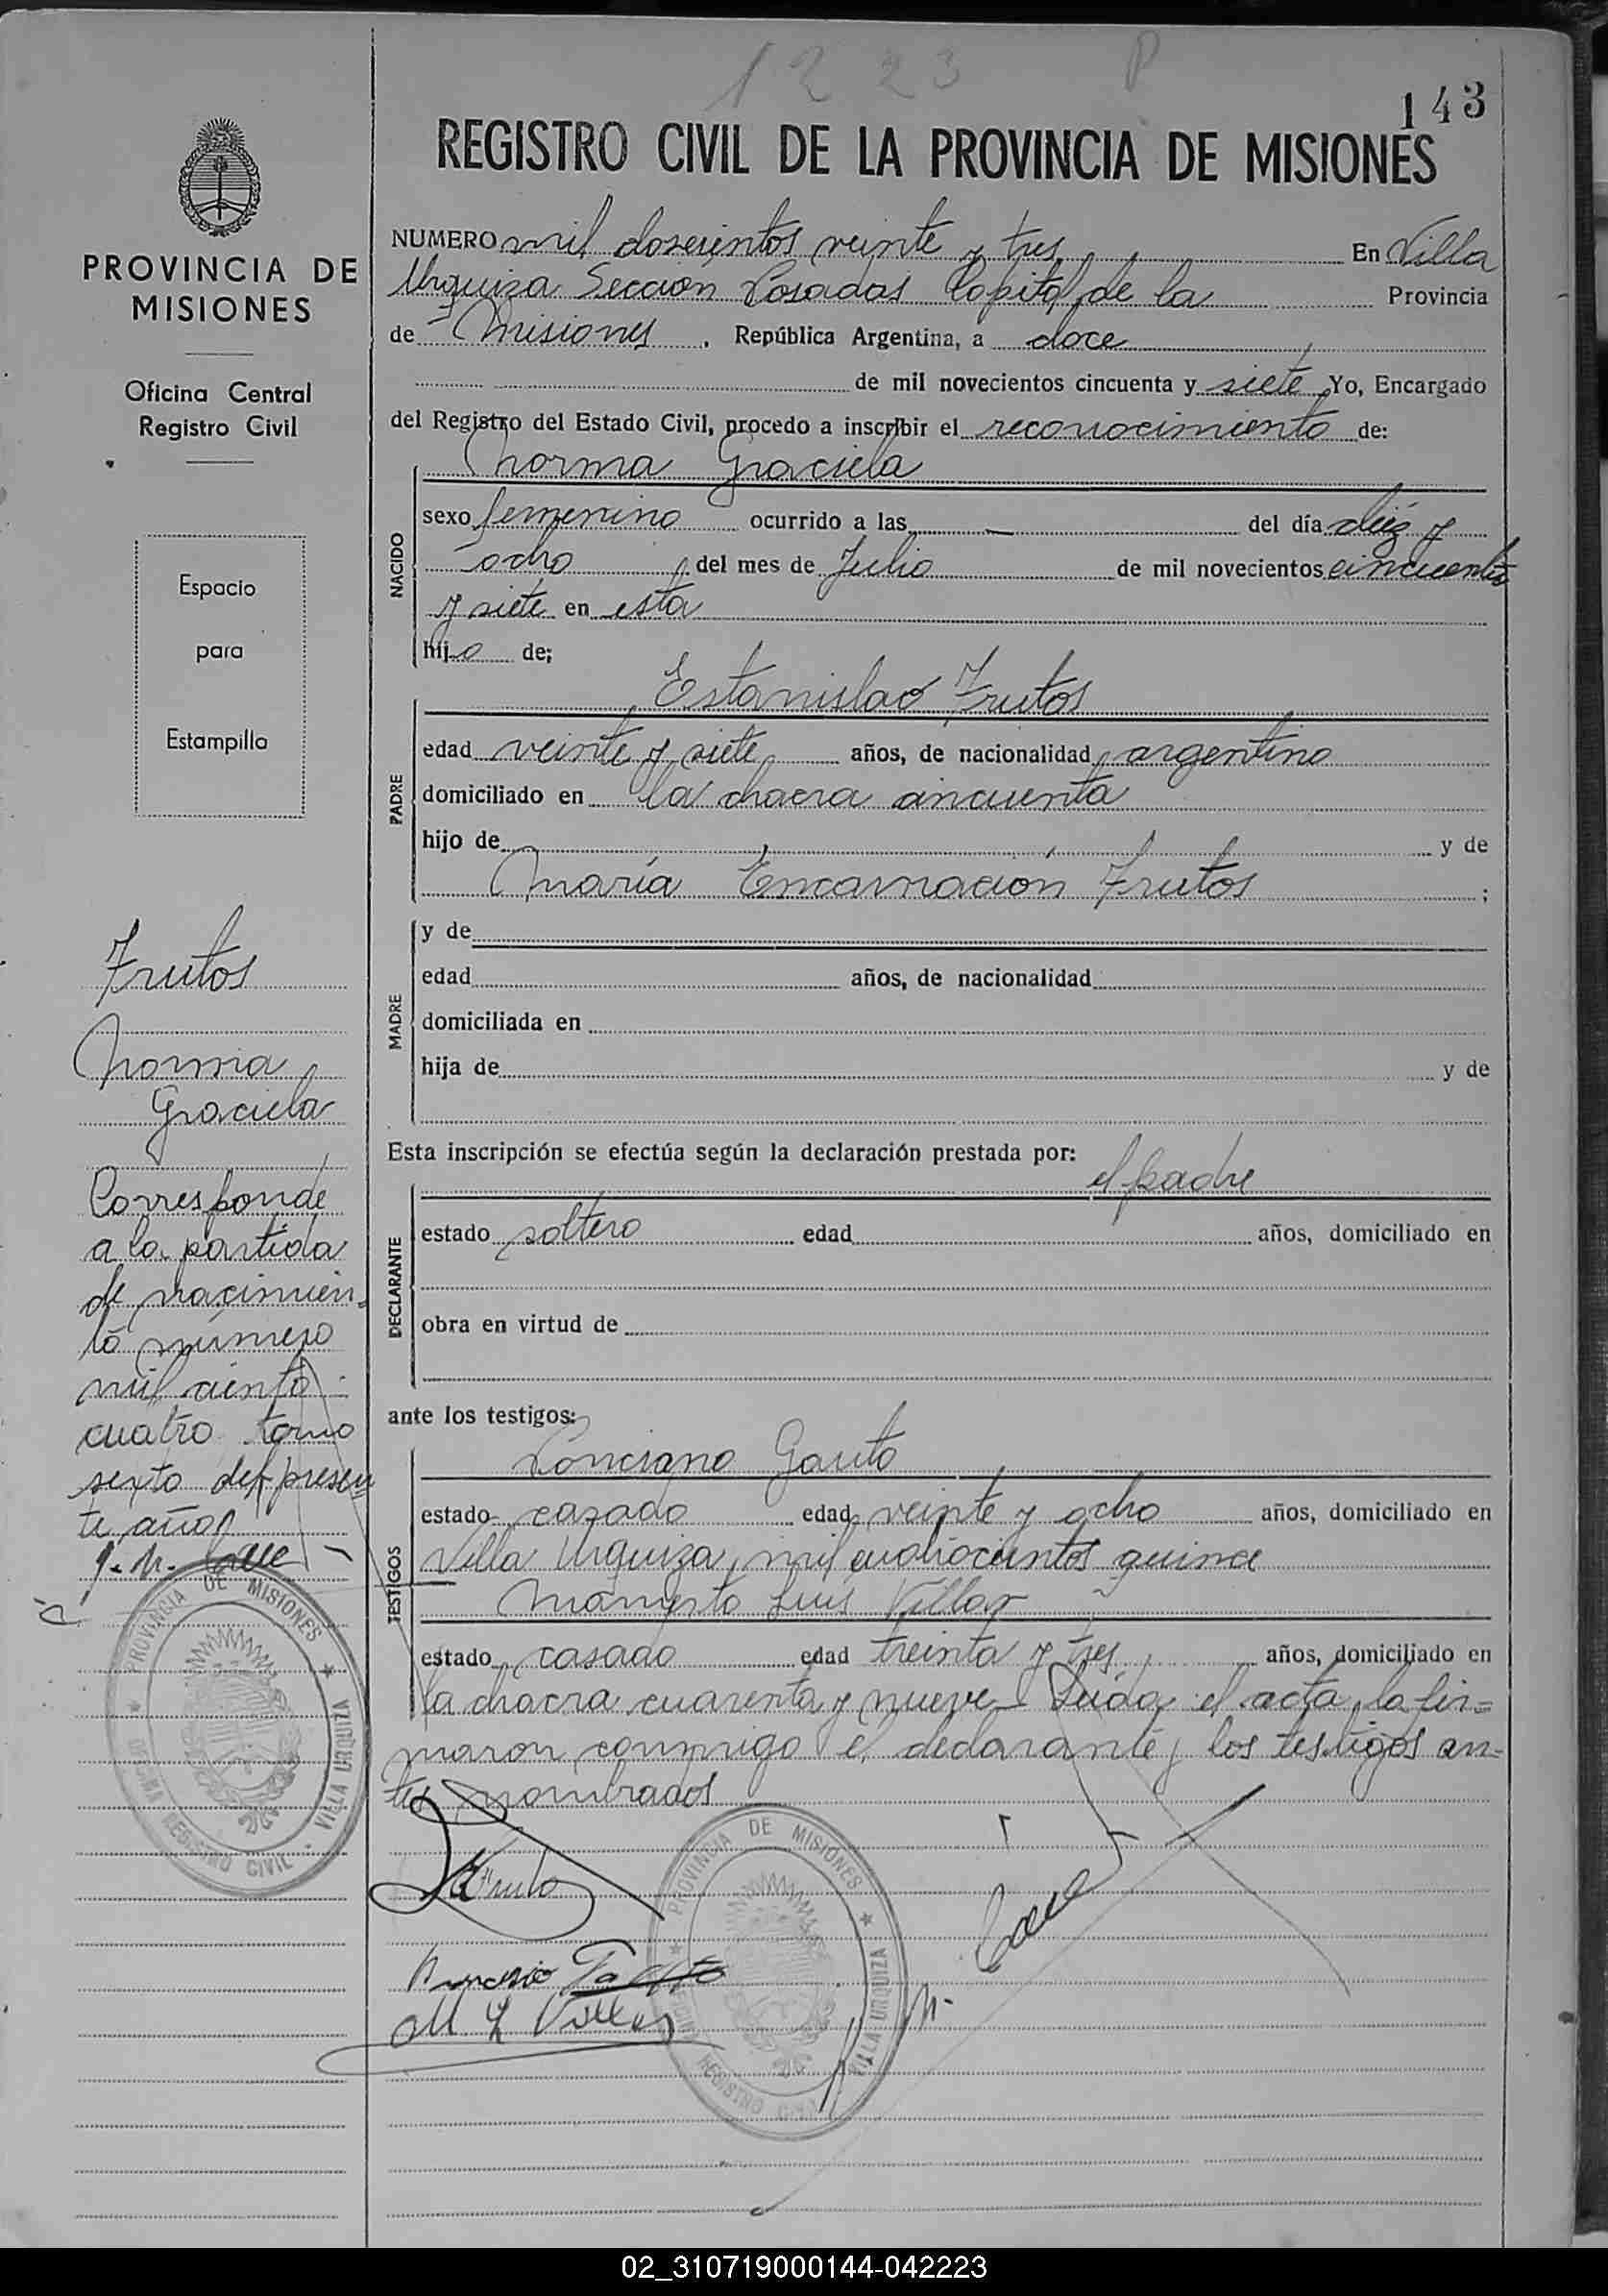 1223 P
143
REGISTRO CIVIL DE LA PROVINCIA DE MISIONES
NUMERO mil doscientos veinte y tres En Villa
Urquiza Sección Posadas Capital de la Provincia
de Misiones, República Argentina, a doce
de mil novecientos cincuenta y siete Yo, Encargado
del Registro del Estado Civil, procedo a inscribir el reconocimiento de:
Norma Graciela
NACIDO
sexo femenino ocurrido a las — del día diéz y
ocho del mes de Julio de mil novecientos cincuenta
y siete en esta
hija de;
Estanislao Frutos
PADRE
edad veinte y siete años, de nacionalidad argentino
domiciliado en la chacra cincuenta
hijo de y de
María Encarnación Frutos ;
MADRE
y de
edad años, de nacionalidad
domiciliada en
hija de y de
Esta inscripción se efectúa según la declaración prestada por:
el padre
DECLARANTE
estado soltero edad años, domiciliado en
obra en virtud de
ante los testigos:
Gauto
TESTIGOS
estado casado edad veinte y ocho años, domiciliado en
Villa Urquiza, mil cuatrocientos quince
Luis Villar
estado casado edad treinta y tres años, domiciliado en
la chacra cuarenta y nueve Leída el acta, la fir=
maron conmigo el declarante y los testigos an=
tes nombrados
Frutos
M L Villar
PROVINCIA DE MISIONES
OFICINA REGISTRO CIVIL
VILLA URQUIZA
PROVINCIA DE
MISIONES
Oficina Central
Registro Civil
Espacio
para
Estampilla
Frutos
Norma
Graciela
Corresponde
a la partida
de nacimien-
to número
mil ciento
cuatro tomo
sexto del presen
te año
PROVINCIA DE MISIONES
OFICINA REGISTRO CIVIL
VILLA URQUIZA
02_310719000144-042223